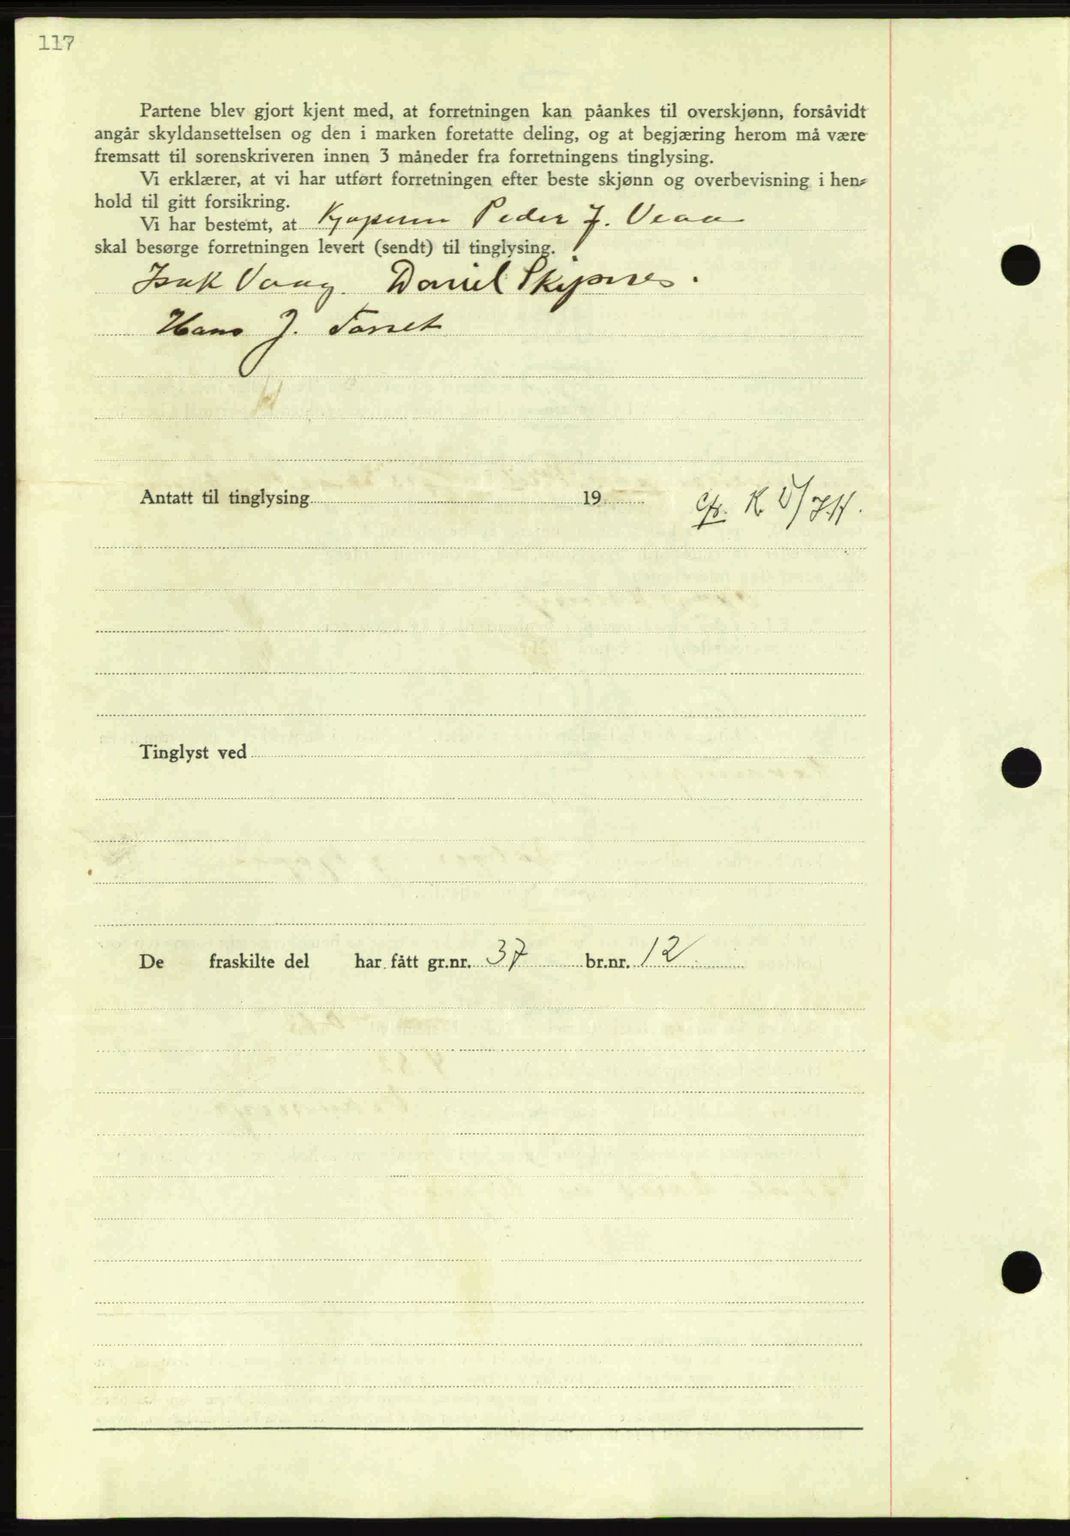 117
Partene blev gjort kjent med, at forretningen kan påankes til overskjønn, forsåvidt
angår skyldansettelsen og den i marken foretatte deling, og at begjæring herom må være
fremsatt til sorenskriveren innen 3 måneder fra forretningens tinglysing.
Vi erklærer, at vi har utført forretningen efter beste skjønn og overbevisning i hen-
hold til gitt forsikring.
Vi har bestemt, at Kjøperen Peder J. Vean
skal besørge forretningen levert (sendt) til tinglysing.
Isak Vaag. Daniel Skjpnes.
Hans J. Farset
Antatt til tinglysing 19
Cfr. K. V/J.H.
Tinglyst ved
De fraskilte del har fått gr.nr. 37 br.nr. 12